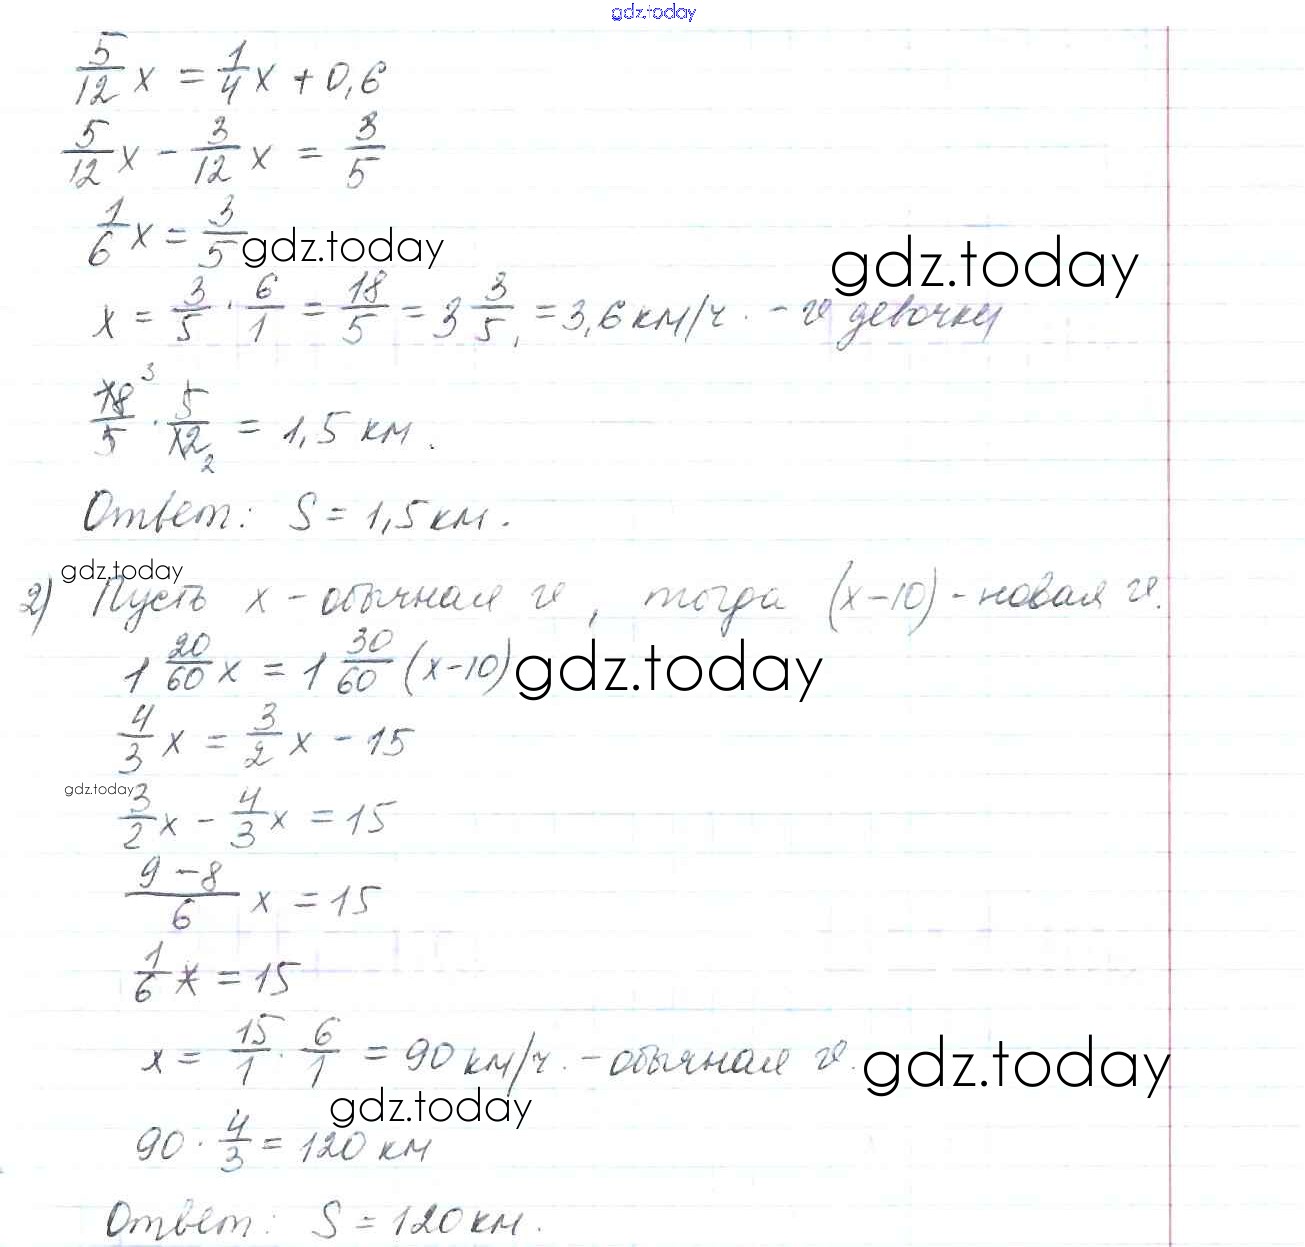 gdz.today
5/12 x = 1/4 x + 0,6
5/12 x - 3/12 x = 3/5
1/6 x = 3/5
gdz.today
gdz.today
x = 3/5 · 6/1 = 18/5 = 3 3/5 = 3,6 км/ч. - v девочки
18³/5 · 5/12₂ = 1,5 км.
Ответ: S = 1,5 км.
gdz.today
2) Пусть x - обычная v, тогда (x-10) - новая v.
1 20/60 x = 1 30/60 (x-10)
gdz.today
4/3 x = 3/2 x - 15
gdz.today
3/2 x - 4/3 x = 15
9-8/6 x = 15
1/6 x = 15
x = 15/1 · 6/1 = 90 км/ч. - обычная v.
gdz.today
gdz.today
90 · 4/3 = 120 км
Ответ: S = 120 км.